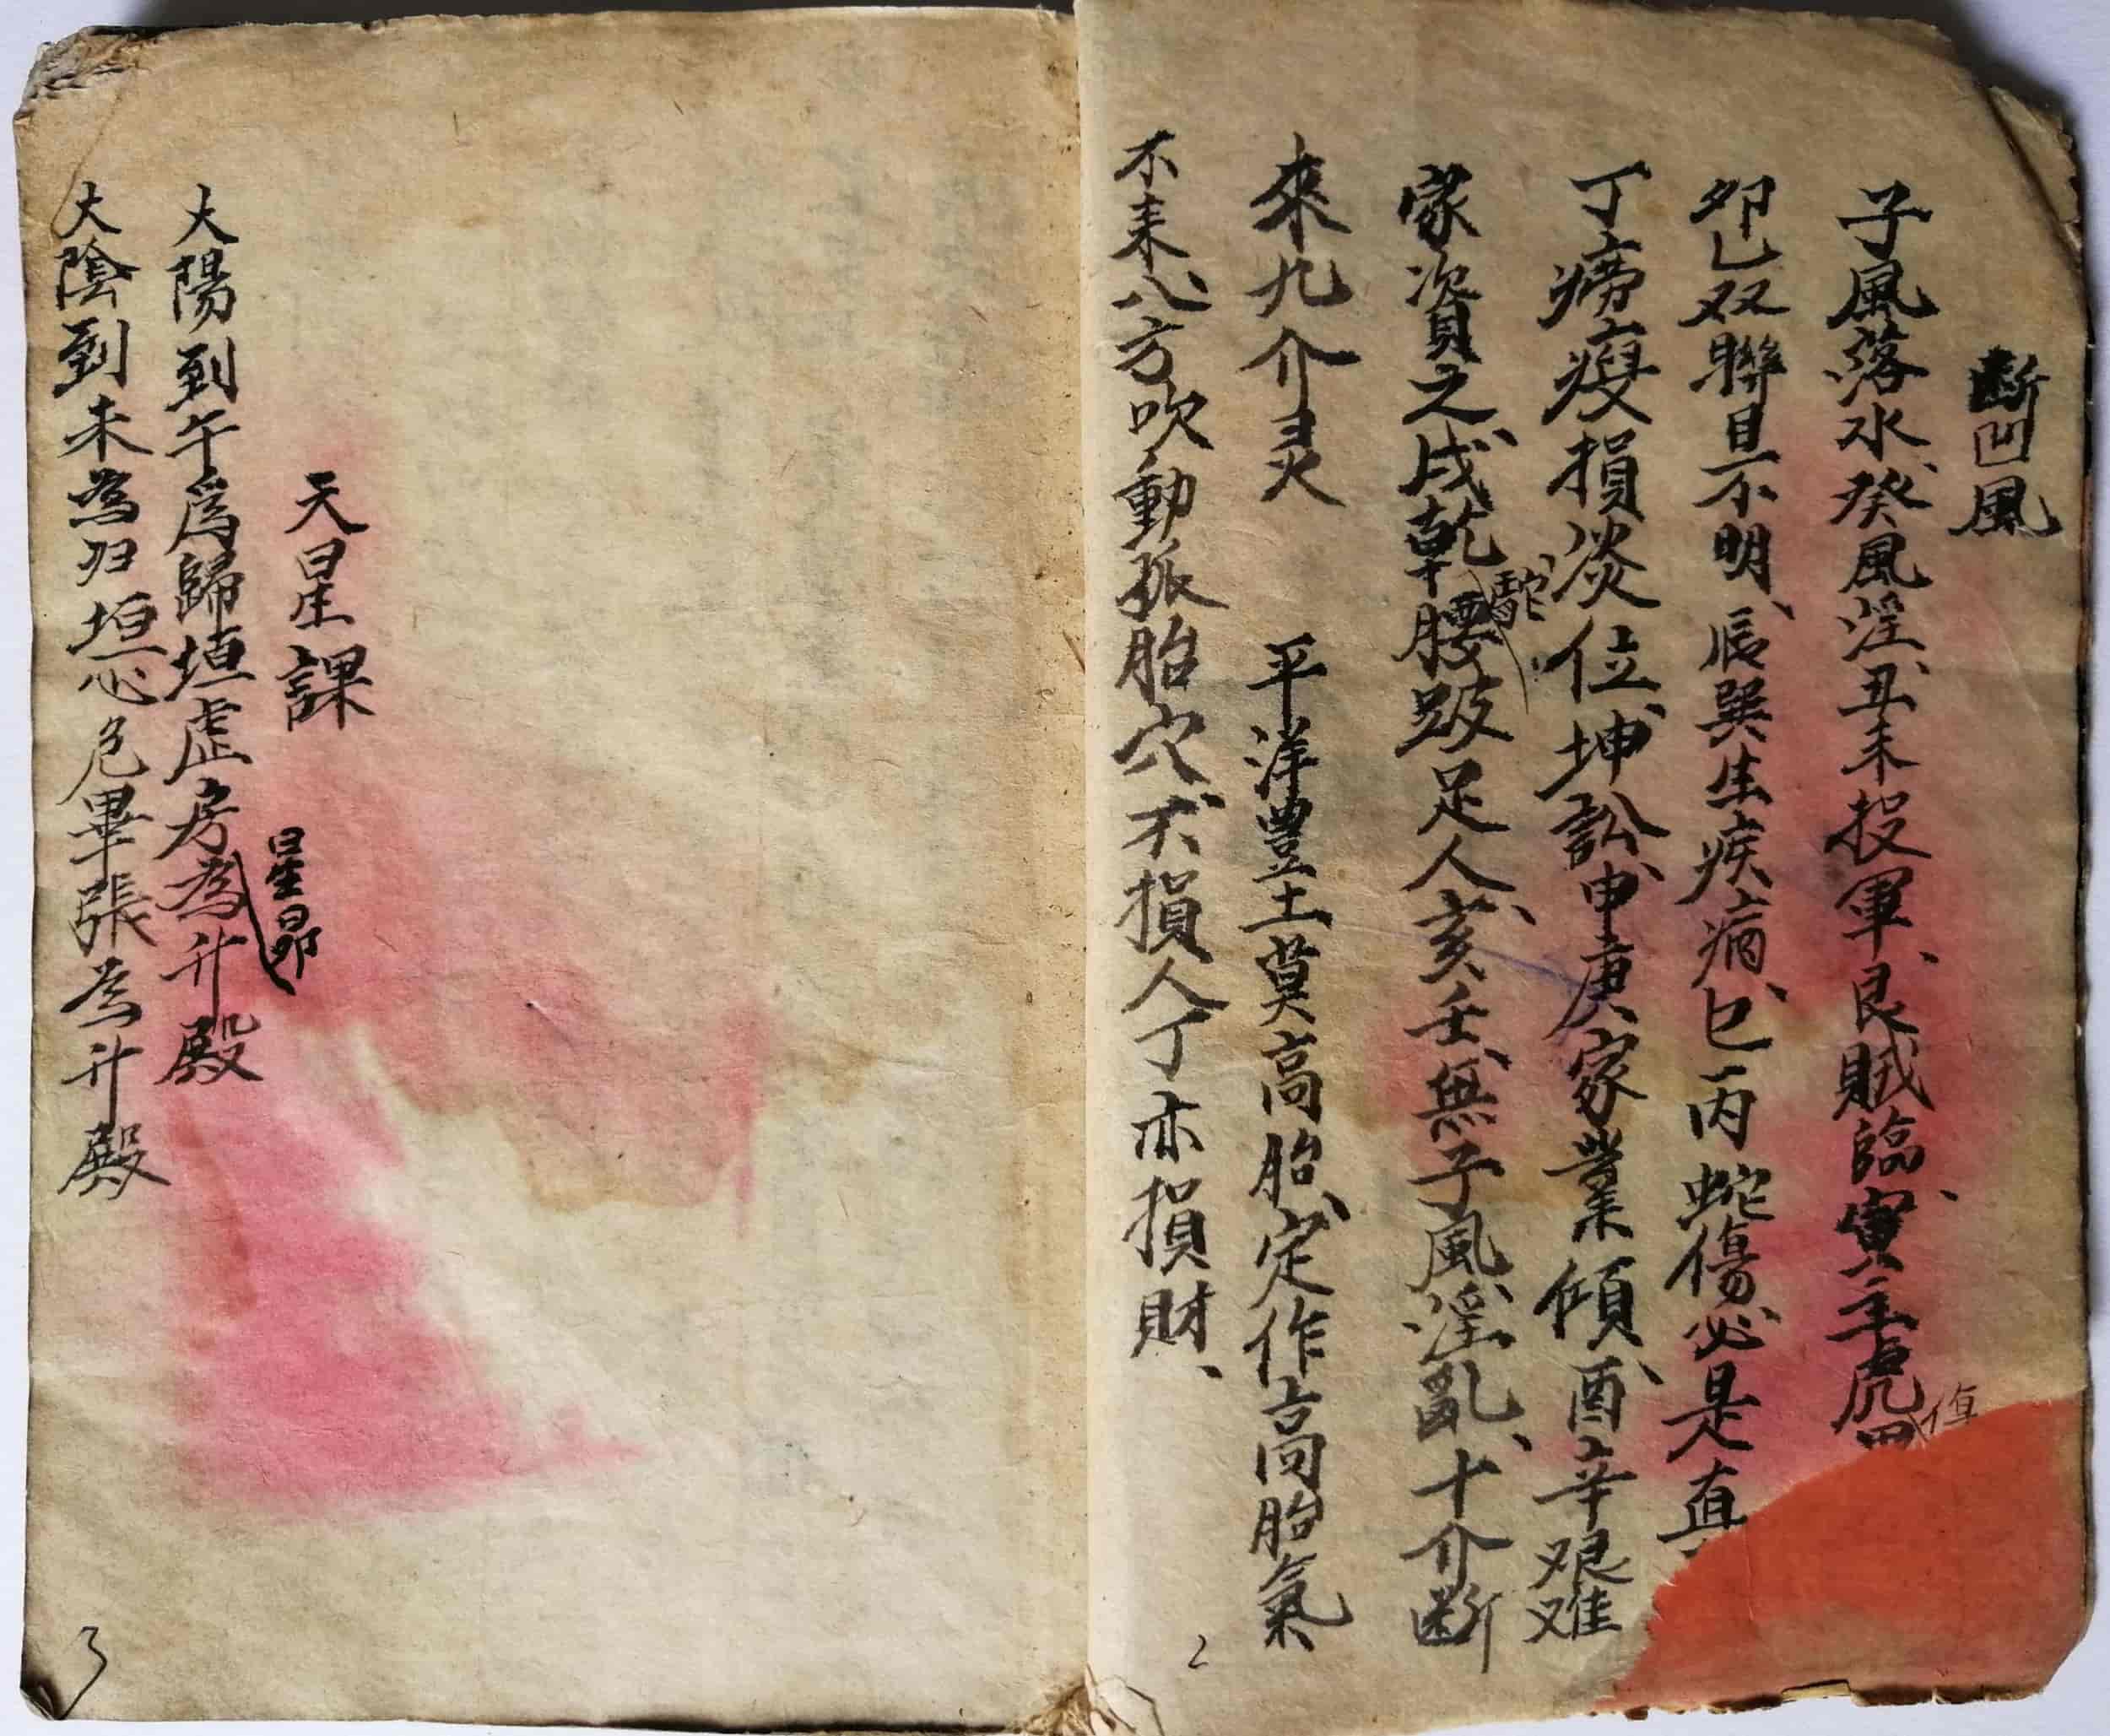 断凹風
子風落水、癸風淫、丑未投軍、艮賊臨、寅主虎傷
卯乙双聯目不明、辰巽生疾病、巳丙蛇傷必是真
丁痨瘦損淡位、坤訟、申庚家業傾、酉辛艰难
家資之、戌乾駝腰跛足人、亥壬無子風淫亂、十介断
來九介灵
平洋豊土莫高胎、定作高胎氣
不来、八方吹動孤胎穴、不損人丁亦損財、
2
天星課
大陽到午爲歸垣虛房星昴為升殿
大陰到未為归垣心危畢張為升殿
3